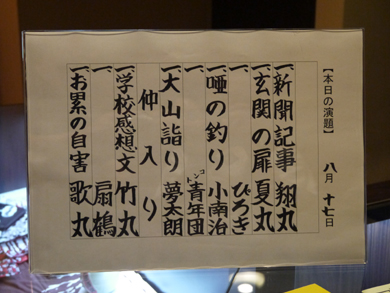 【本日の演題】 八月 十七日
一、新聞記事 翔丸
一、玄関の扉 夏丸
一、 ぴろき
一、唖の釣り 小南治
一、 コント青年団
一、大山詣り 夢太朗
仲入り
一、学校感想文 竹丸
一、 扇鶴
一、お累の自害 歌丸